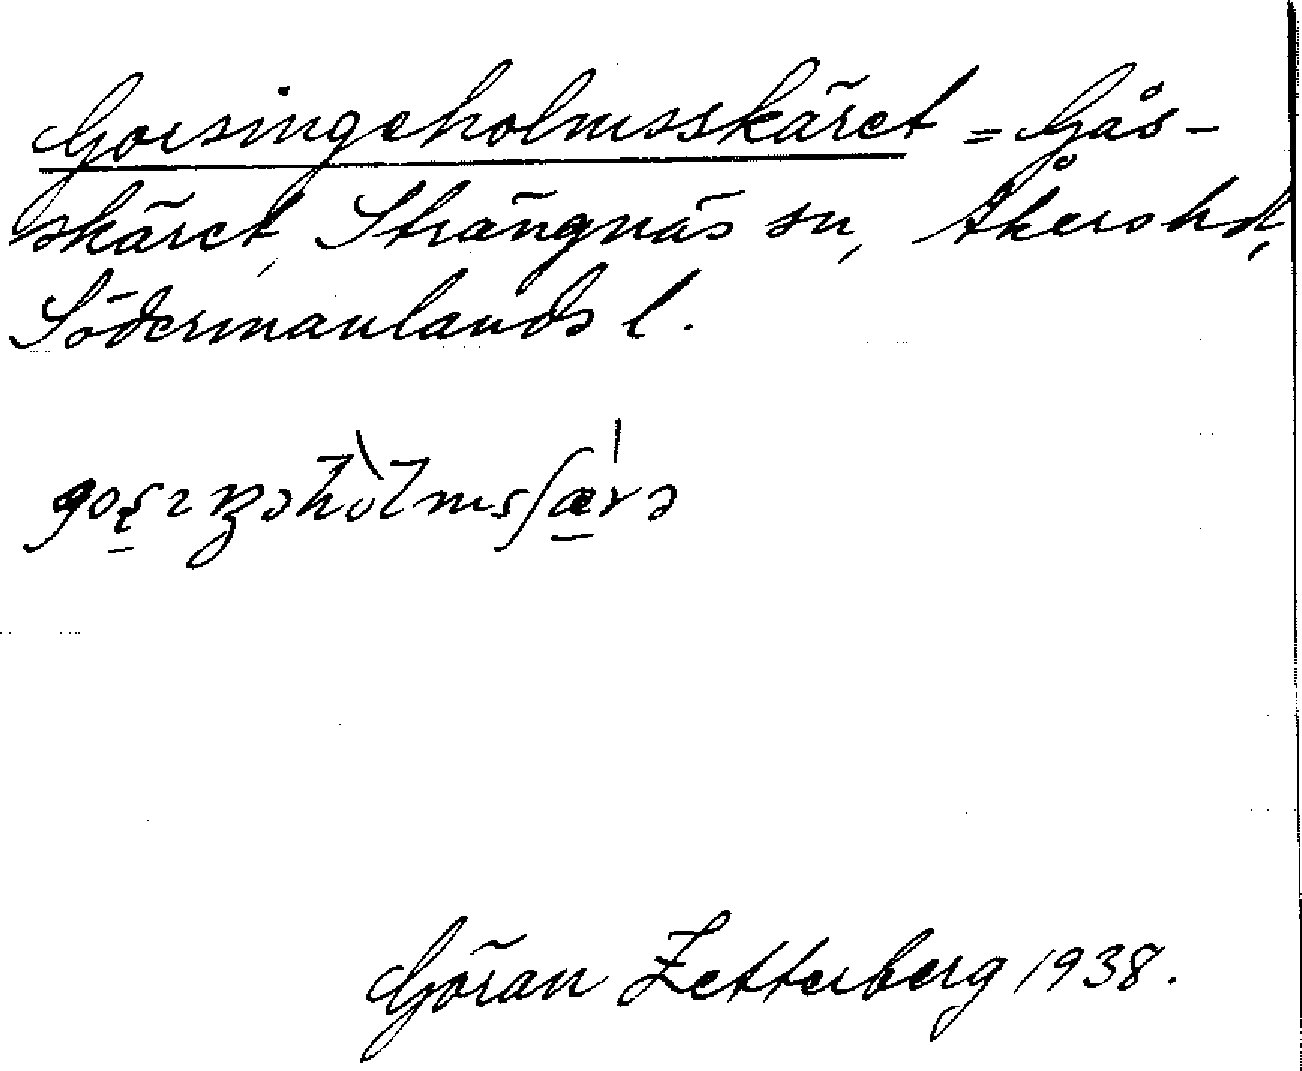 Gorsingeholmsskäret = Gås-
skäret, Strängnäs sn, Åkers hd,
Södermanlands l.
Göran Zetterberg 1938.